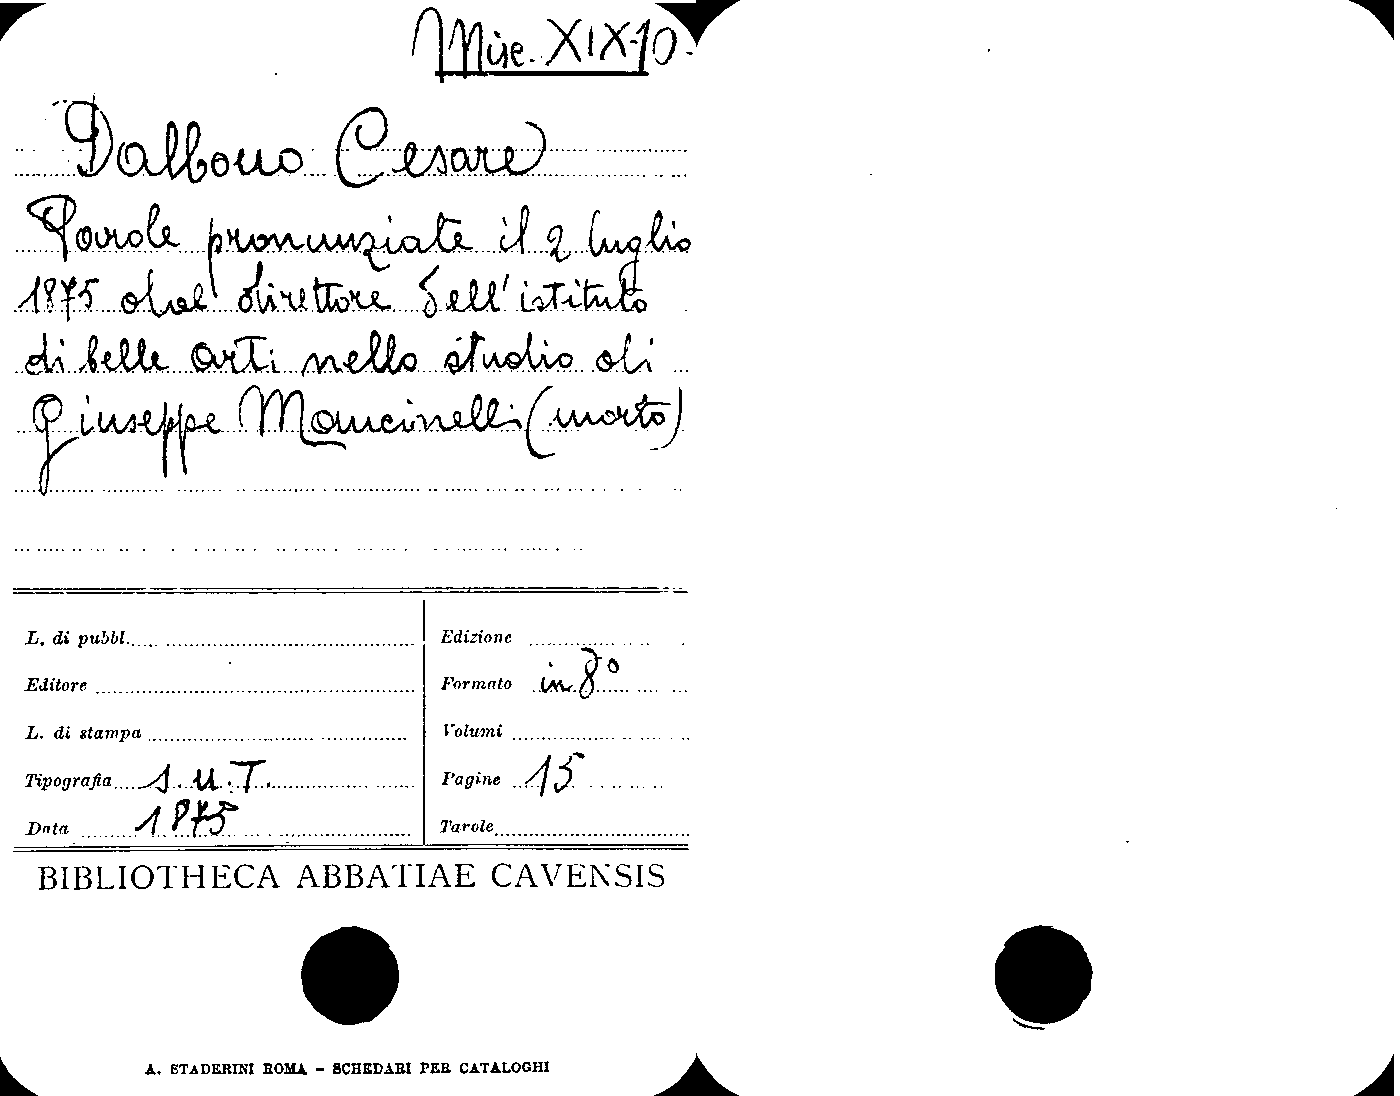 Misc. XIX-10-
Dalbono Cesare
Parole pronunziate il 2 luglio
1875 dal direttore dell'istituto
di belle arti nello studio di
Giuseppe Mancinelli (morto)
L. di pubbl.
Edizione
Editore
Formato in 8°
L. di stampa
Volumi
Tipografia s.u.T.
Pagine 15
Data 1875
Tavole
BIBLIOTHECA ABBATIAE CAVENSIS
A. STADERINI ROMA - SCHEDARI PER CATALOGHI